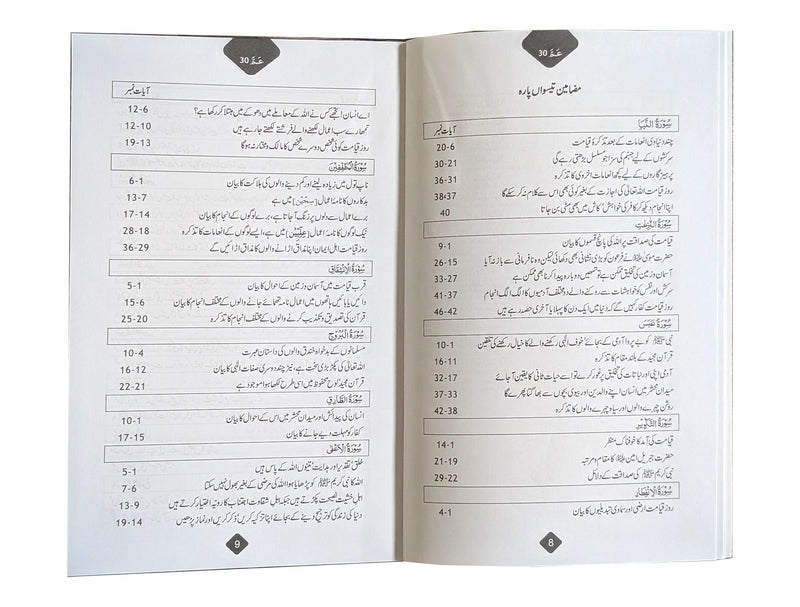 عَمَّ 30
مضامین تیسواں پارہ
آیات نمبر
سُوْرَةُ النَّبَاِ
چند دنیاوی انعامات کے بعد تذکرۂ قیامت 6-20
سرکشوں کے لیے جہنم کی سزا جو مسلسل بڑھتی رہے گی 21-30
پرہیزگاروں کے لیے کچھ انعامات اخروی کا تذکرہ 31-36
روز قیامت اللہ تعالیٰ کی اجازت کے بغیر کوئی بھی اس سے کلام نہ کر سکے گا 37،38
اپنا انجام دیکھ کر کافر کی خواہش‘ کاش میں بھی مٹی بن جاتا 40
سُوْرَةُ النّٰزِعٰتِ
قیامت کی صداقت پر اللہ کی پانچ قسموں کا بیان 1-9
حضرت موسیٰ نے فرعون کو بڑی نشانی بھی دکھائی لیکن وہ نافرمانی سے باز نہ آیا 15-26
آسمان و زمین کی تخلیق ممکن ہے تو تمھیں دوبارہ پیدا کرنا بھی ممکن ہے 27-33
سرکش اور نفس کو خواہشات سے روکنے والے دو مختلف آدمیوں کا الگ الگ انجام 37-41
روز قیامت کفار کہیں گے کہ دنیا میں ایک دن کا پہلا یا آخری حصہ رہے ہیں 42-46
سُوْرَةُ عَبَسَ
نبی ﷺ کو بے پروا آدمی کے بجائے‘ خوف الٰہی رکھنے والے کا خیال رکھنے کی تلقین 1-10
قرآن مجید کے بلند مقام کا تذکرہ 11-16
آدمی اپنی اور نباتات کی تخلیق پر غور کرے تو اسے حیات ثانی کا یقین آجائے 17-32
میدان محشر میں انسان اپنے والدین اور بیوی بچوں سے بھاگتا پھرے گا 33-37
روشن چہرے والوں اور سیاہ چہرے والوں کا تذکرہ 38-42
سُوْرَةُ التَّكْوِيْرِ
قیامت کی آمد کا خوفناک منظر 1-14
حضرت جبریل امین کا مقام و مرتبہ 19-21
نبی کریم ﷺ کی صداقت کے دلائل 22-29
سُوْرَةُ الْاِنْفِطَارِ
روز قیامت ارضی اور سماوی تبدیلیوں کا بیان 1-4
8
عَمَّ 30
آیات نمبر
اے انسان! تجھے کس نے اللہ کے معاملے میں دھوکے میں مبتلا کر رکھا ہے؟ 6-12
تمھارے سب اعمال لکھنے والے فرشتے لکھتے جا رہے ہیں 10-12
روز قیامت کوئی شخص دوسرے شخص کا مالک و مختار نہ ہوگا 13-19
سُوْرَةُ الْمُطَفِّفِيْنَ
ناپ تول میں زیادہ لینے اور کم دینے والوں کی ہلاکت کا بیان 1-6
بدکاروں کا نامۂ اعمال [سِجِّيْن] میں ہے 7-13
برے اعمال سے دلوں پر زنگ آ جاتا ہے، برے لوگوں کے انجام کا بیان 14-17
نیک لوگوں کا نامۂ اعمال [عِلِّيِّيْن] میں ہے، ایسے لوگوں کے انعامات کا تذکرہ 18-28
روز قیامت اہل ایمان اپنا مذاق اڑانے والوں کا مذاق اڑائیں گے 29-36
سُوْرَةُ الْاِنْشِقَاقِ
قرب قیامت میں آسمان و زمین کے احوال کا بیان 1-5
دائیں یا بائیں ہاتھوں میں اعمال نامہ تھمائے جانے والوں کے مختلف انجام کا بیان 6-15
قرآن کی تصدیق و تکذیب کرنے والوں کے مختلف انجام کا تذکرہ 20-25
سُوْرَةُ الْبُرُوْجِ
مسلمانوں کے بدخواہ خندق والوں کی داستان عبرت 4-10
اللہ تعالیٰ کی پکڑ بڑی سخت ہے، نیز چند دوسری صفات الٰہی کا بیان 12-16
قرآن مجید‘ لوح محفوظ میں اسی طرح لکھا ہوا موجود ہے 21-22
سُوْرَةُ الطَّارِقِ
انسان کی پیدائش اور میدان محشر میں اس کے احوال کا بیان 1-10
کفار کو مہلت دیے جانے کا بیان 15-17
سُوْرَةُ الْاَعْلٰى
خلق‘ تقدیر اور ہدایت‘ تینوں اللہ کے پاس ہیں 1-5
اللہ کا نبی کریم ﷺ کو پڑھایا ہوا اللہ کی مرضی کے بغیر بھول نہیں سکتا 6-7
اہل خشیت نصیحت پکڑتے ہیں جبکہ اہل شقاوت اجتناب کا رویہ اختیار کرتے ہیں 9-13
دنیا کی زندگی کو ترجیح دینے کے بجائے اپنا تزکیہ کریں‘ ذکر کریں اور نماز پڑھیں 14-19
9